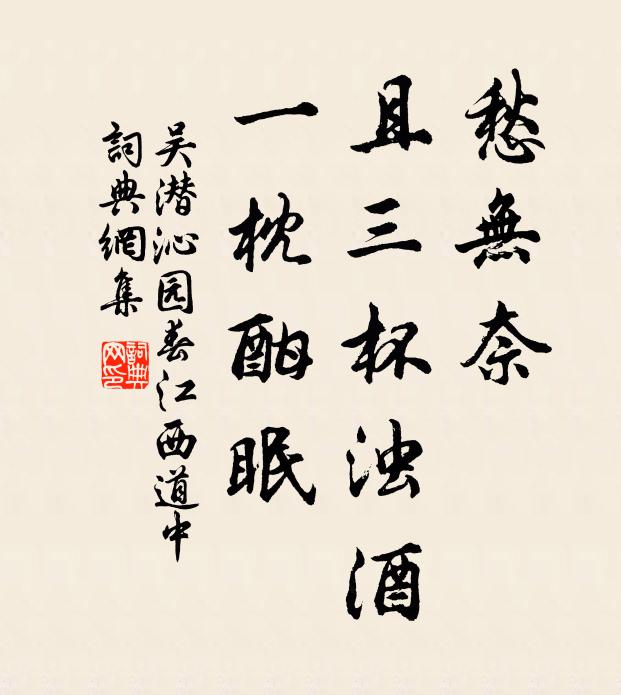 愁無奈
且三杯浊酒
一枕酣眠
吴潜沁园春江西道中
詞典網集
詞典网印